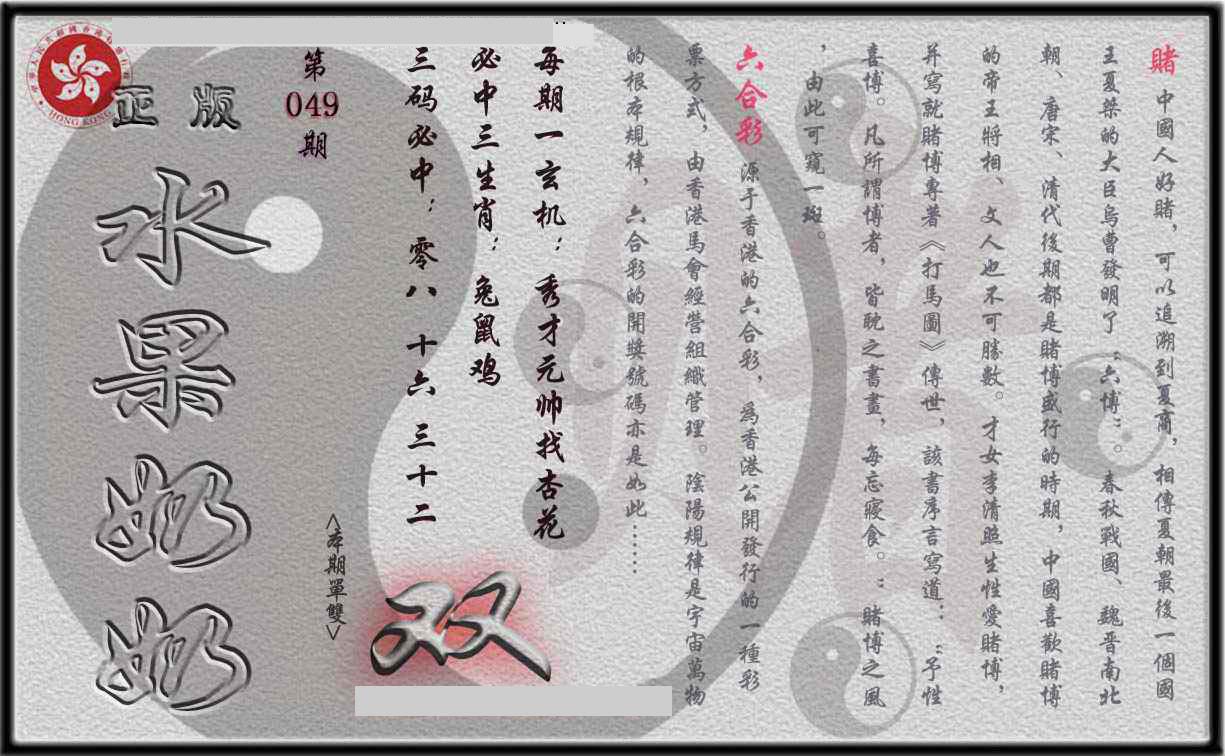 賭 中國人好賭，可以追溯到夏商，相傳夏朝最後一個國
王夏桀的大臣烏曹發明了“六博”。春秋戰國、魏晋南北
朝、唐宋、清代後期都是賭博盛行的時期，中國喜歡賭博
的帝王將相、文人也不可勝數。才女李清照生性愛賭博，
并寫就賭博專著《打馬圖》傳世，該書序言寫道：“予性
喜博。凡所謂博者，皆耽之書晝，每忘寢食。“賭博之風
，由此可窺一斑。
六合彩 源于香港的六合彩，為香港公開發行的一種彩
票方式，由香港馬會經營組織管理。陰陽規律是宇宙萬物
的根本規律，六合彩的開獎號碼亦是如此……
每期一玄机：秀才元帅找杏花
必中三生肖：兔鼠鸡
三码必中：零八 十六 三十二
第
049
期
<本期單雙>
双
正版
水果奶奶
HONG KONG